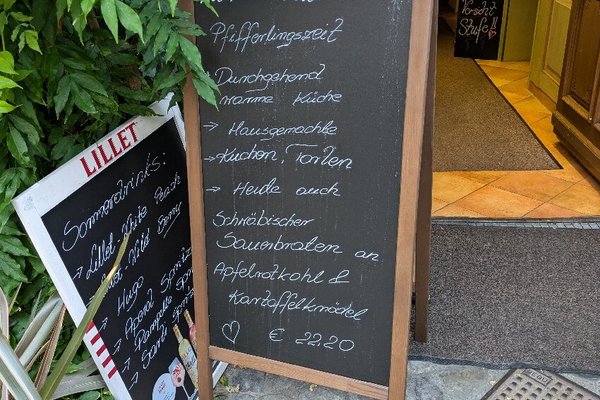 Pfifferlingszeit
Durchgehend
warme Küche
→ Hausgemachte
→ Kuchen, Torten
→ Heute auch
Schwäbischer
Sauerbraten an
Apfelrotkohl &
Kartoffelknödel
♡ € 22,20
LILLET
Sommerdrinks:
→ Lillet-White Peach
→ Lillet-Wild Berry
→ Hugo
→ Aperol Spritz
→ Pampelle
→ Sarti
Vorsicht
Stufe!!